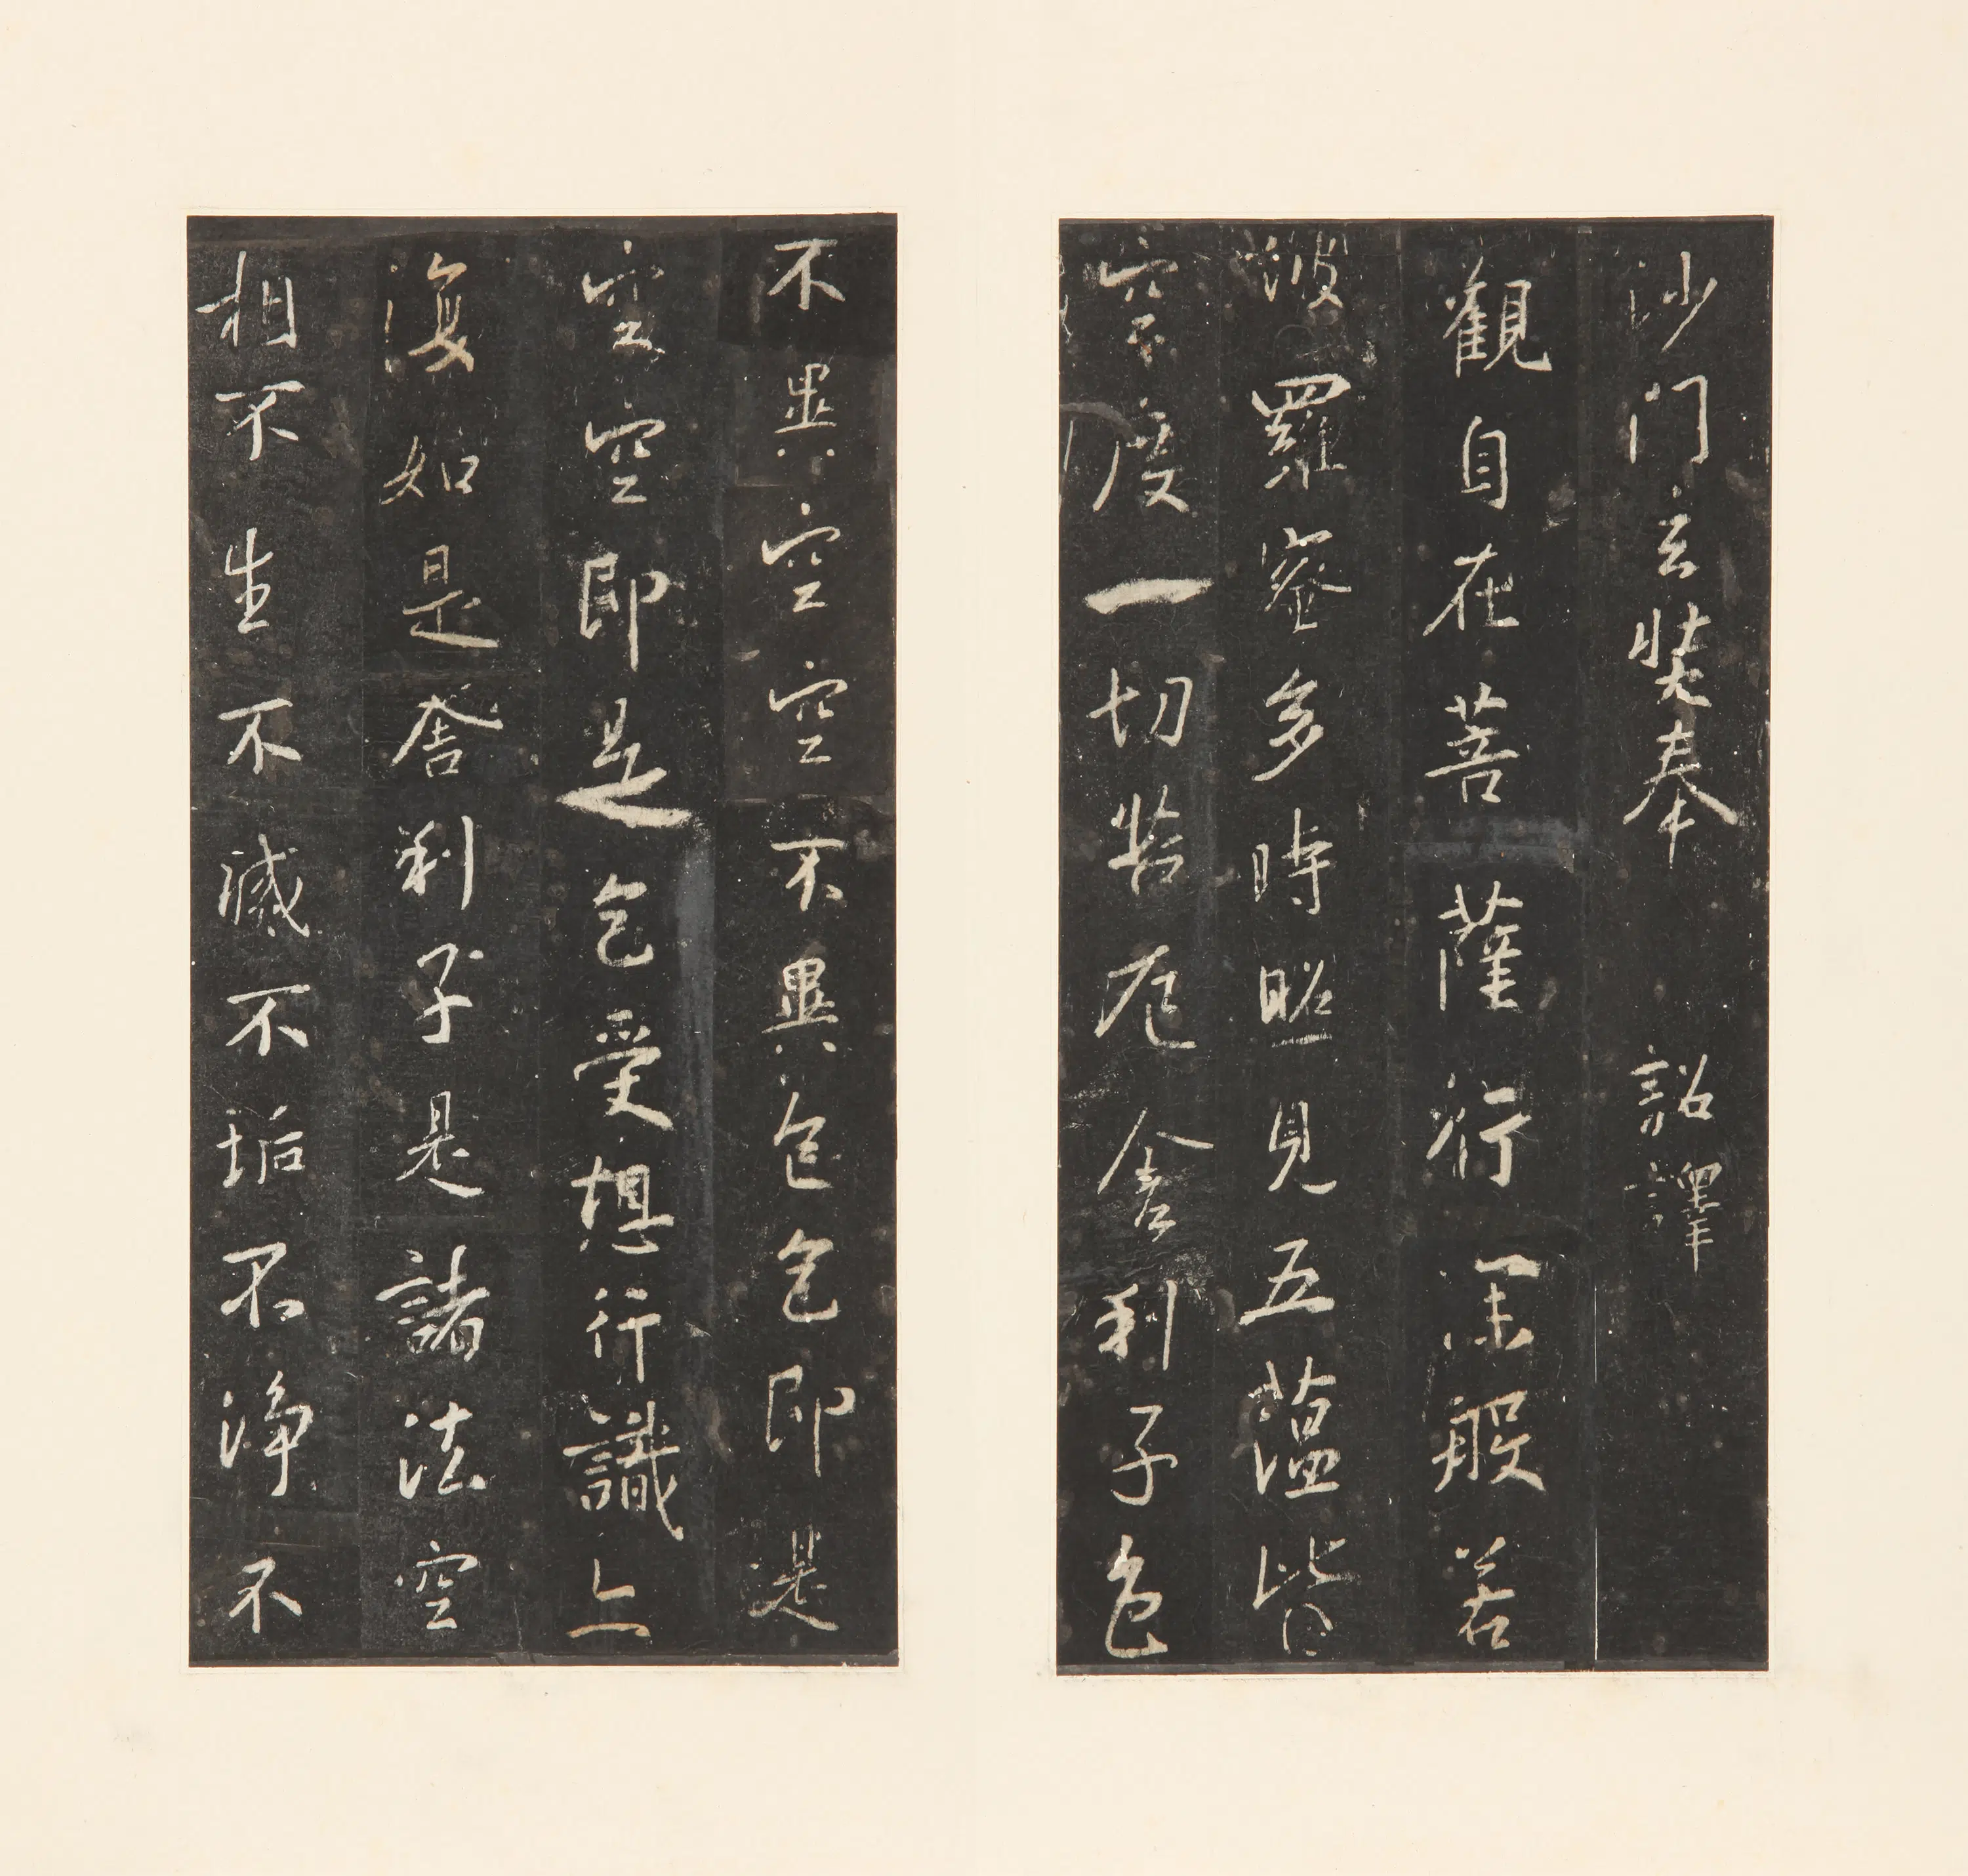 沙門玄奘奉 詔譯
觀自在菩薩行深般若
波羅蜜多時照見五蘊皆
空度一切苦厄舍利子色
不異空空不異色色即是
空空即是色受想行識亦
復如是舍利子是諸法空
相不生不滅不垢不淨不